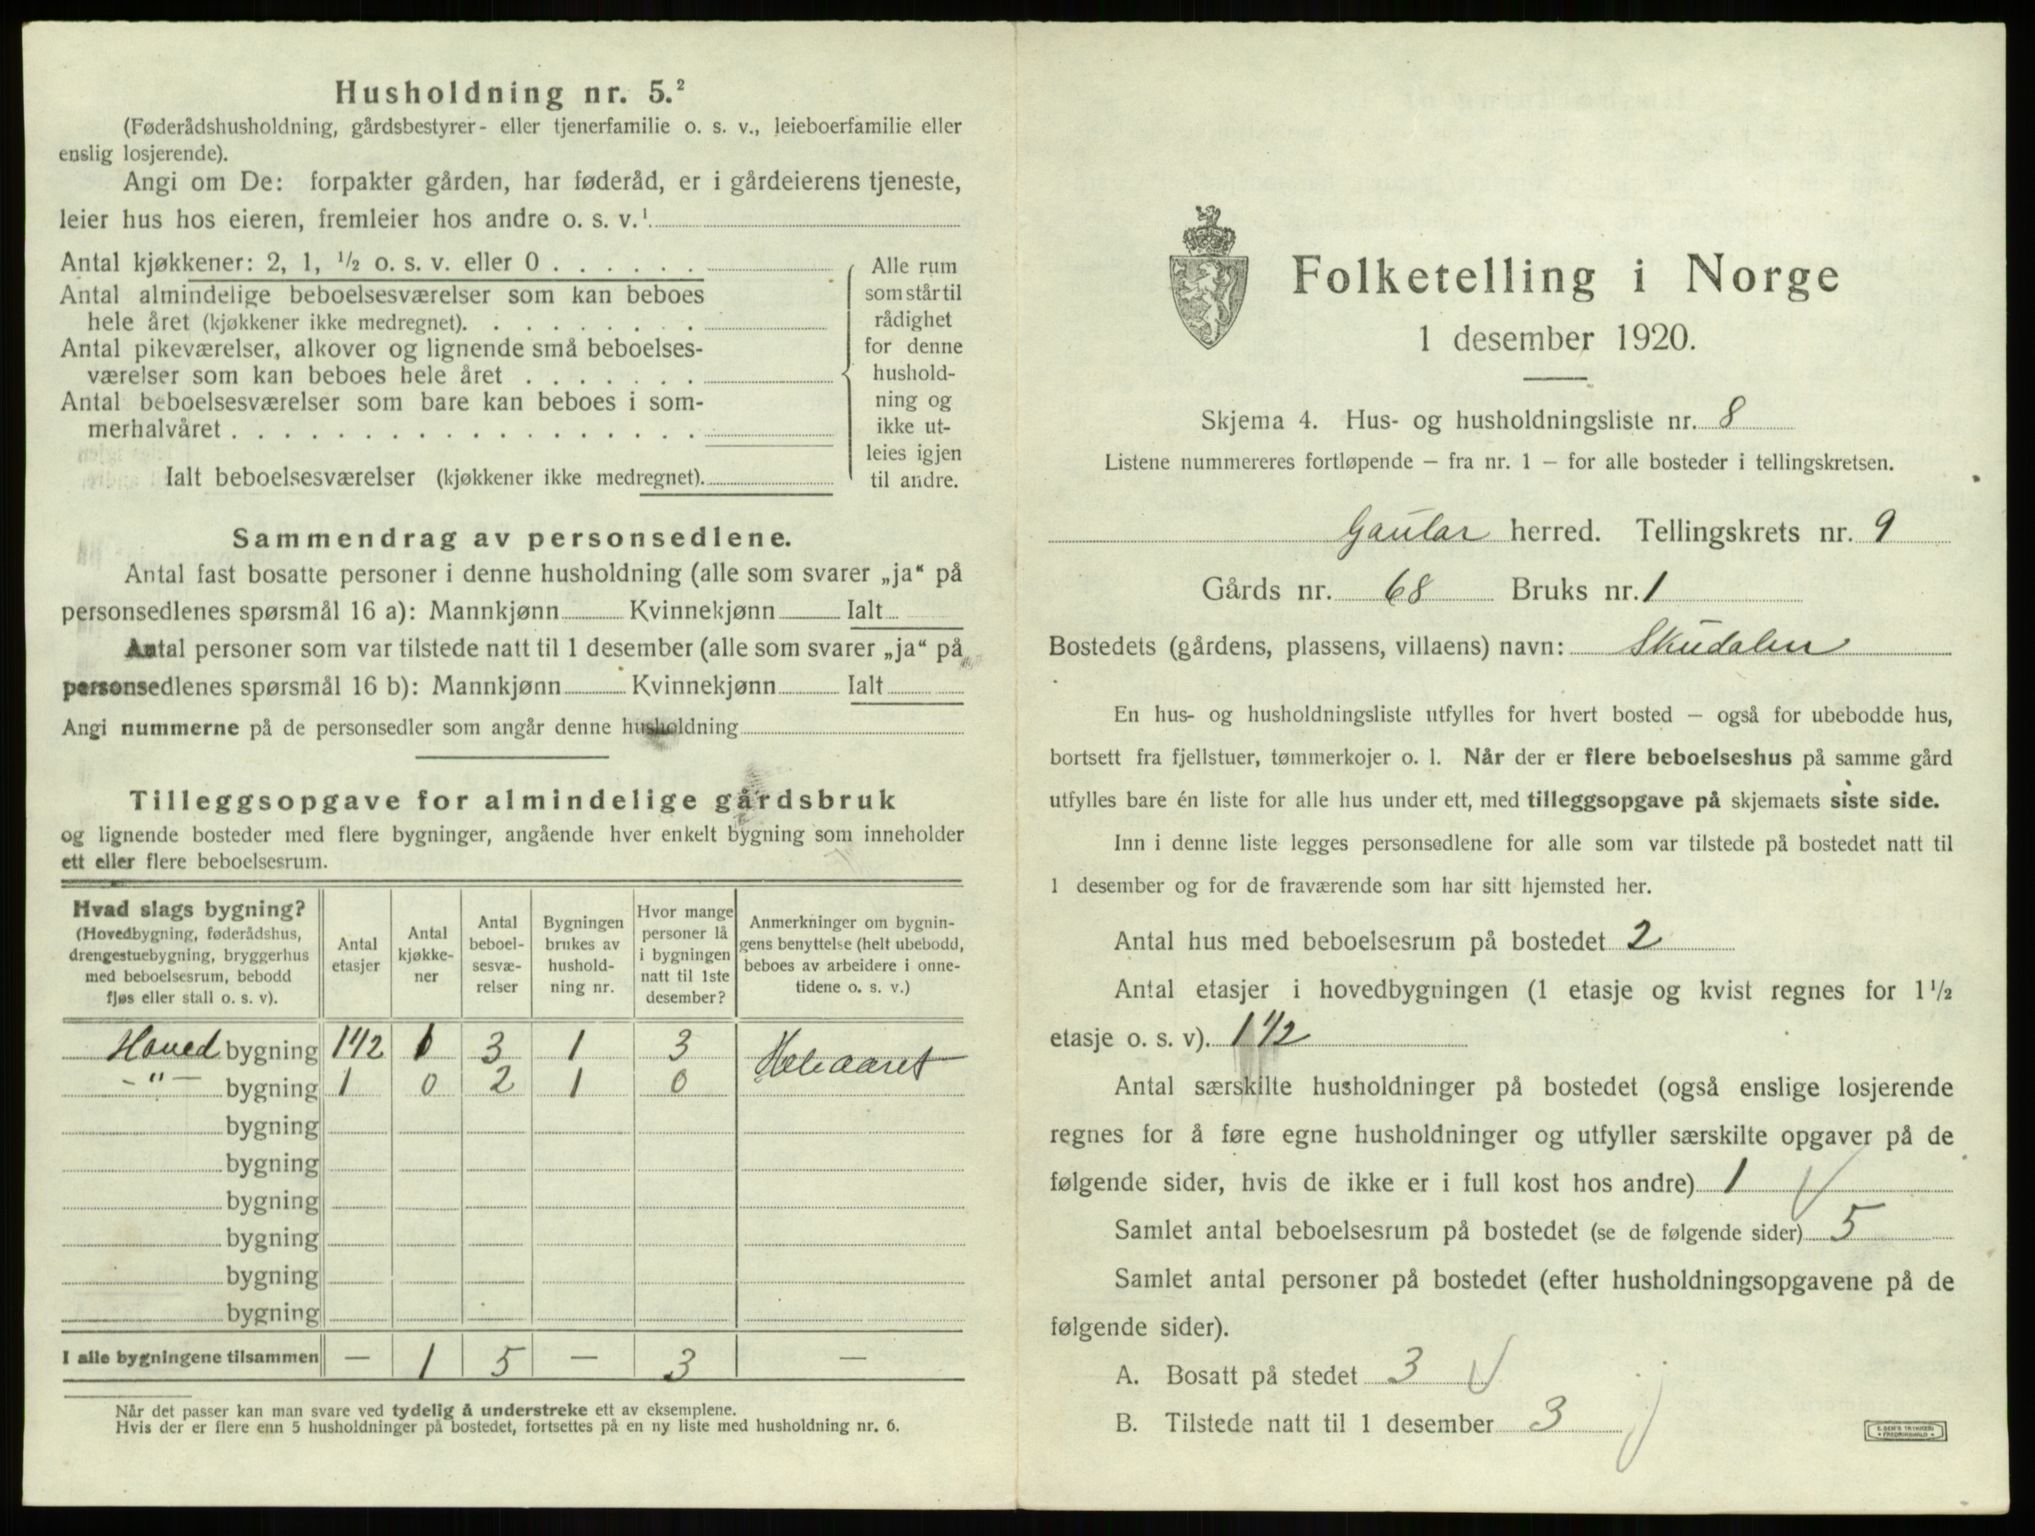 Husholdning nr. 5.²
(Føderådshusholdning, gårdsbestyrer- eller tjenerfamilie o. s. v., leieboerfamilie eller
enslig losjerende).
Angi om De: forpakter gården, har føderåd, er i gårdeierens tjeneste,
leier hus hos eieren, fremleier hos andre o. s. v.¹
Antal kjøkkener: 2, 1, ½ o. s. v. eller 0 . . . . . .
Antal almindelige beboelsesværelser som kan beboes
hele året (kjøkkener ikke medregnet). . . . . . . . .
Antal pikeværelser, alkover og lignende små beboelses-
værelser som kan beboes hele året . . . . . . .
Antal beboelsesværelser som bare kan beboes i som-
merhalvåret . . . . . . . . . . . . . . . . . .
Ialt beboelsesværelser (kjøkkener ikke medregnet).
Alle rum
som står til
rådighet
for denne
hushold-
ning og
ikke ut-
leies igjen
til andre.
Sammendrag av personsedlene.
Antal fast bosatte personer i denne husholdning (alle som svarer „ja“ på
personsedlenes spørsmål 16 a): Mannkjønn Kvinnekjønn Ialt
Antal personer som var tilstede natt til 1 desember (alle som svarer „ja“ på
personsedlenes spørsmål 16 b): Mannkjønn Kvinnekjønn Ialt
Angi nummerne på de personsedler som angår denne husholdning
Tilleggsopgave for almindelige gårdsbruk
og lignende bosteder med flere bygninger, angående hver enkelt bygning som inneholder
ett eller flere beboelsesrum.
Hvad slags bygning?
(Hovedbygning, føderådshus,
drengestuebygning, bryggerhus
med beboelsesrum, bebodd
fjøs eller stall o. s. v).
Antal
etasjer
Antal
kjøkke-
ner
Antal
beboel-
sesvæ-
relser
Bygningen
brukes av
hushold-
ning nr.
Hvor mange
personer lå
i bygningen
natt til 1ste
desember?
Anmerkninger om bygnin-
gens benyttelse (helt ubebodd,
beboes av arbeidere i onne-
tidene o. s. v.)
Hoved bygning 1 1/2 1 3 1 3 Heleaaret
-"- bygning 1 0 2 1 0
bygning
bygning
bygning
bygning
bygning
bygning
I alle bygningene tilsammen — 1 5 — 3 —
Når det passer kan man svare ved tydelig å understreke ett av eksemplene.
Hvis der er flere enn 5 husholdninger på bostedet, fortsettes på en ny liste med husholdning nr. 6.
Folketelling i Norge
1 desember 1920.
Skjema 4. Hus- og husholdningsliste nr. 8
Listene nummereres fortløpende – fra nr. 1 – for alle bosteder i tellingskretsen.
Gaular herred. Tellingskrets nr. 9
Gårds nr. 68 Bruks nr. 1
Bostedets (gårdens, plassens, villaens) navn: Skudalen
En hus- og husholdningsliste utfylles for hvert bosted – også for ubebodde hus,
bortsett fra fjellstuer, tømmerkojer o. l. Når der er flere beboelseshus på samme gård
utfylles bare én liste for alle hus under ett, med tilleggsopgave på skjemaets siste side.
Inn i denne liste legges personsedlene for alle som var tilstede på bostedet natt til
1 desember og for de fraværende som har sitt hjemsted her.
Antal hus med beboelsesrum på bostedet 2
Antal etasjer i hovedbygningen (1 etasje og kvist regnes for 1½
etasje o. s. v). 1 1/2
Antal særskilte husholdninger på bostedet (også enslige losjerende
regnes for å føre egne husholdninger og utfyller særskilte opgaver på de
følgende sider, hvis de ikke er i full kost hos andre) 1
Samlet antal beboelsesrum på bostedet (se de følgende sider) 5
Samlet antal personer på bostedet (efter husholdningsopgavene på de
følgende sider).
A. Bosatt på stedet 3
B. Tilstede natt til 1 desember 3